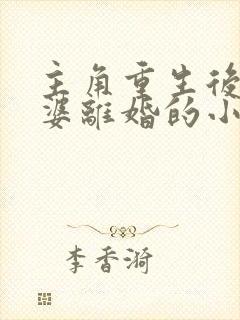 主角重生後
婆離婚的小
李香漪